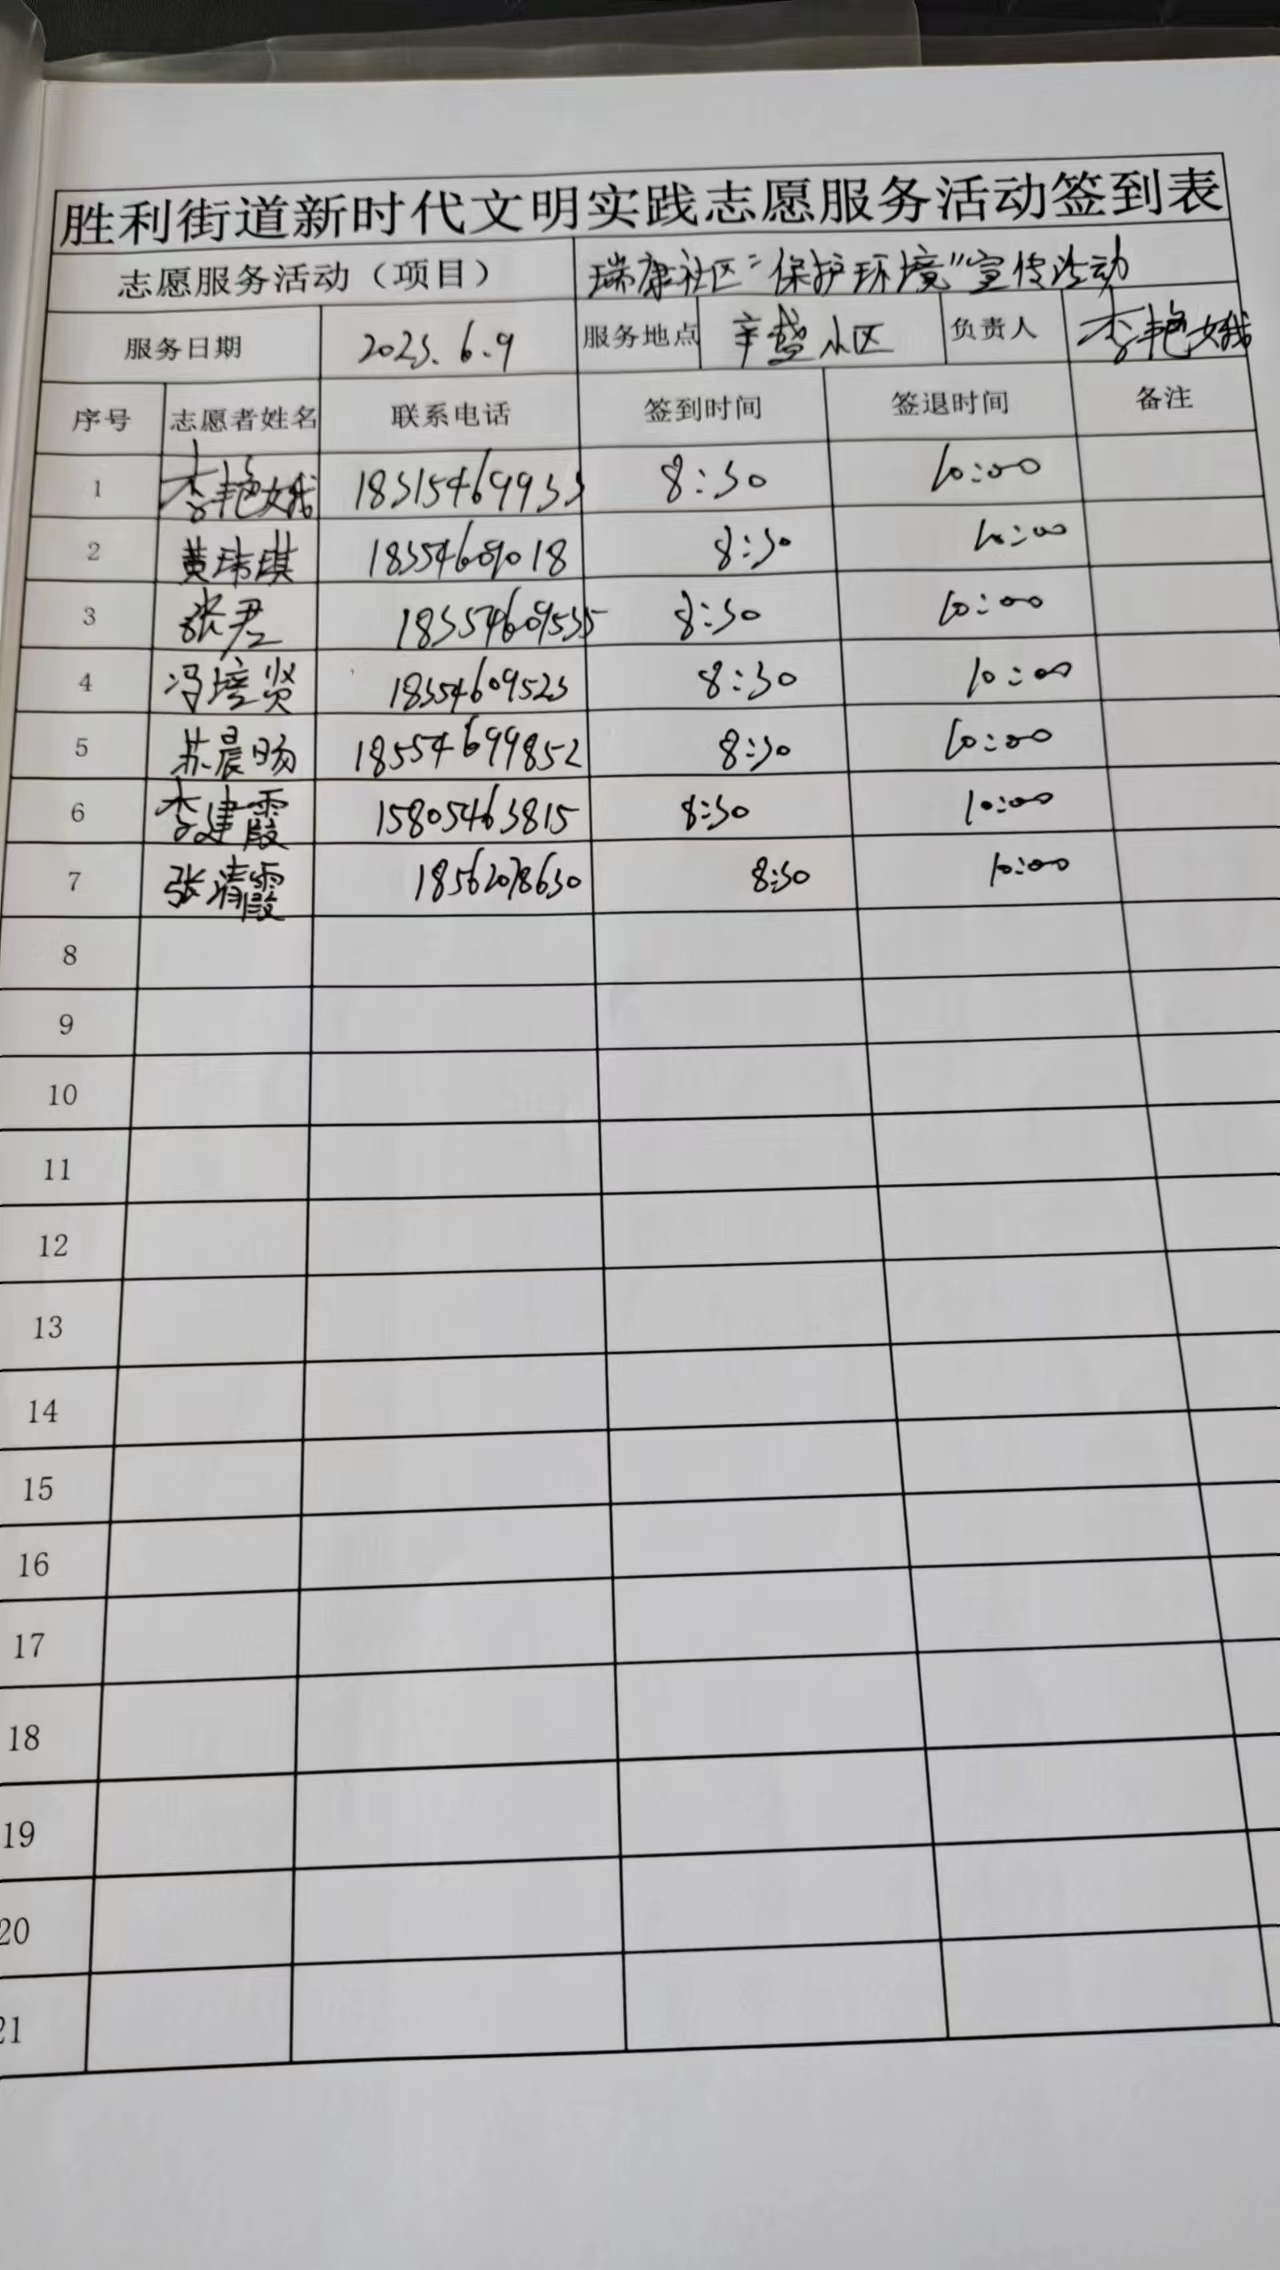 胜利街道新时代文明实践志愿服务活动签到表
志愿服务活动（项目） 瑞康社区“保护环境”宣传活动
服务日期 2023.6.9 服务地点 辛盛小区 负责人 李艳娥
序号 志愿者姓名 联系电话 签到时间 签退时间 备注
1 李艳娥 18315469933 8:30 10:00
2 黄玮琪 18354609018 8:30 10:00
3 张君 18354609535 8:30 10:00
4 冯培贤 18354609523 8:30 10:00
5 苏晨旸 18554699852 8:30 10:00
6 李建霞 15805463815 8:30 10:00
7 张清霞 18562078630 8:30 10:00
8
9
10
11
12
13
14
15
16
17
18
19
20
21